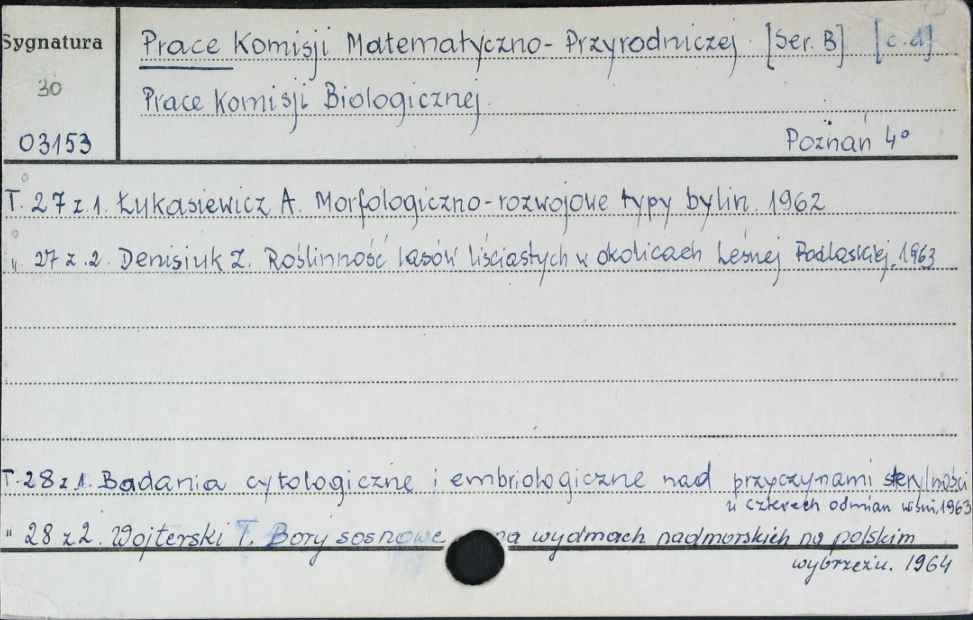 Sygnatura
30
03153
Prace Komisji Matematyczno-Przyrodniczej [Ser. B] [c.d]
Prace Komisji Biologicznej.
Poznań 4°
T. 27 z 1. Łukasiewicz A. Morfologiczno-rozwojowe typy bylin. 1962
" 27 z. 2. Denisiuk Z. Roślinność lasów liściastych w okolicach Leśnej Podlaskiej. 1963
T. 28 z 1. Badania cytologiczne i embriologiczne nad przyczynami sterylności
u czterech odmian wiśni. 1963
" 28 z 2. Wojterski T. Bory sosnowe na wydmach nadmorskich na polskim
wybrzeżu. 1964